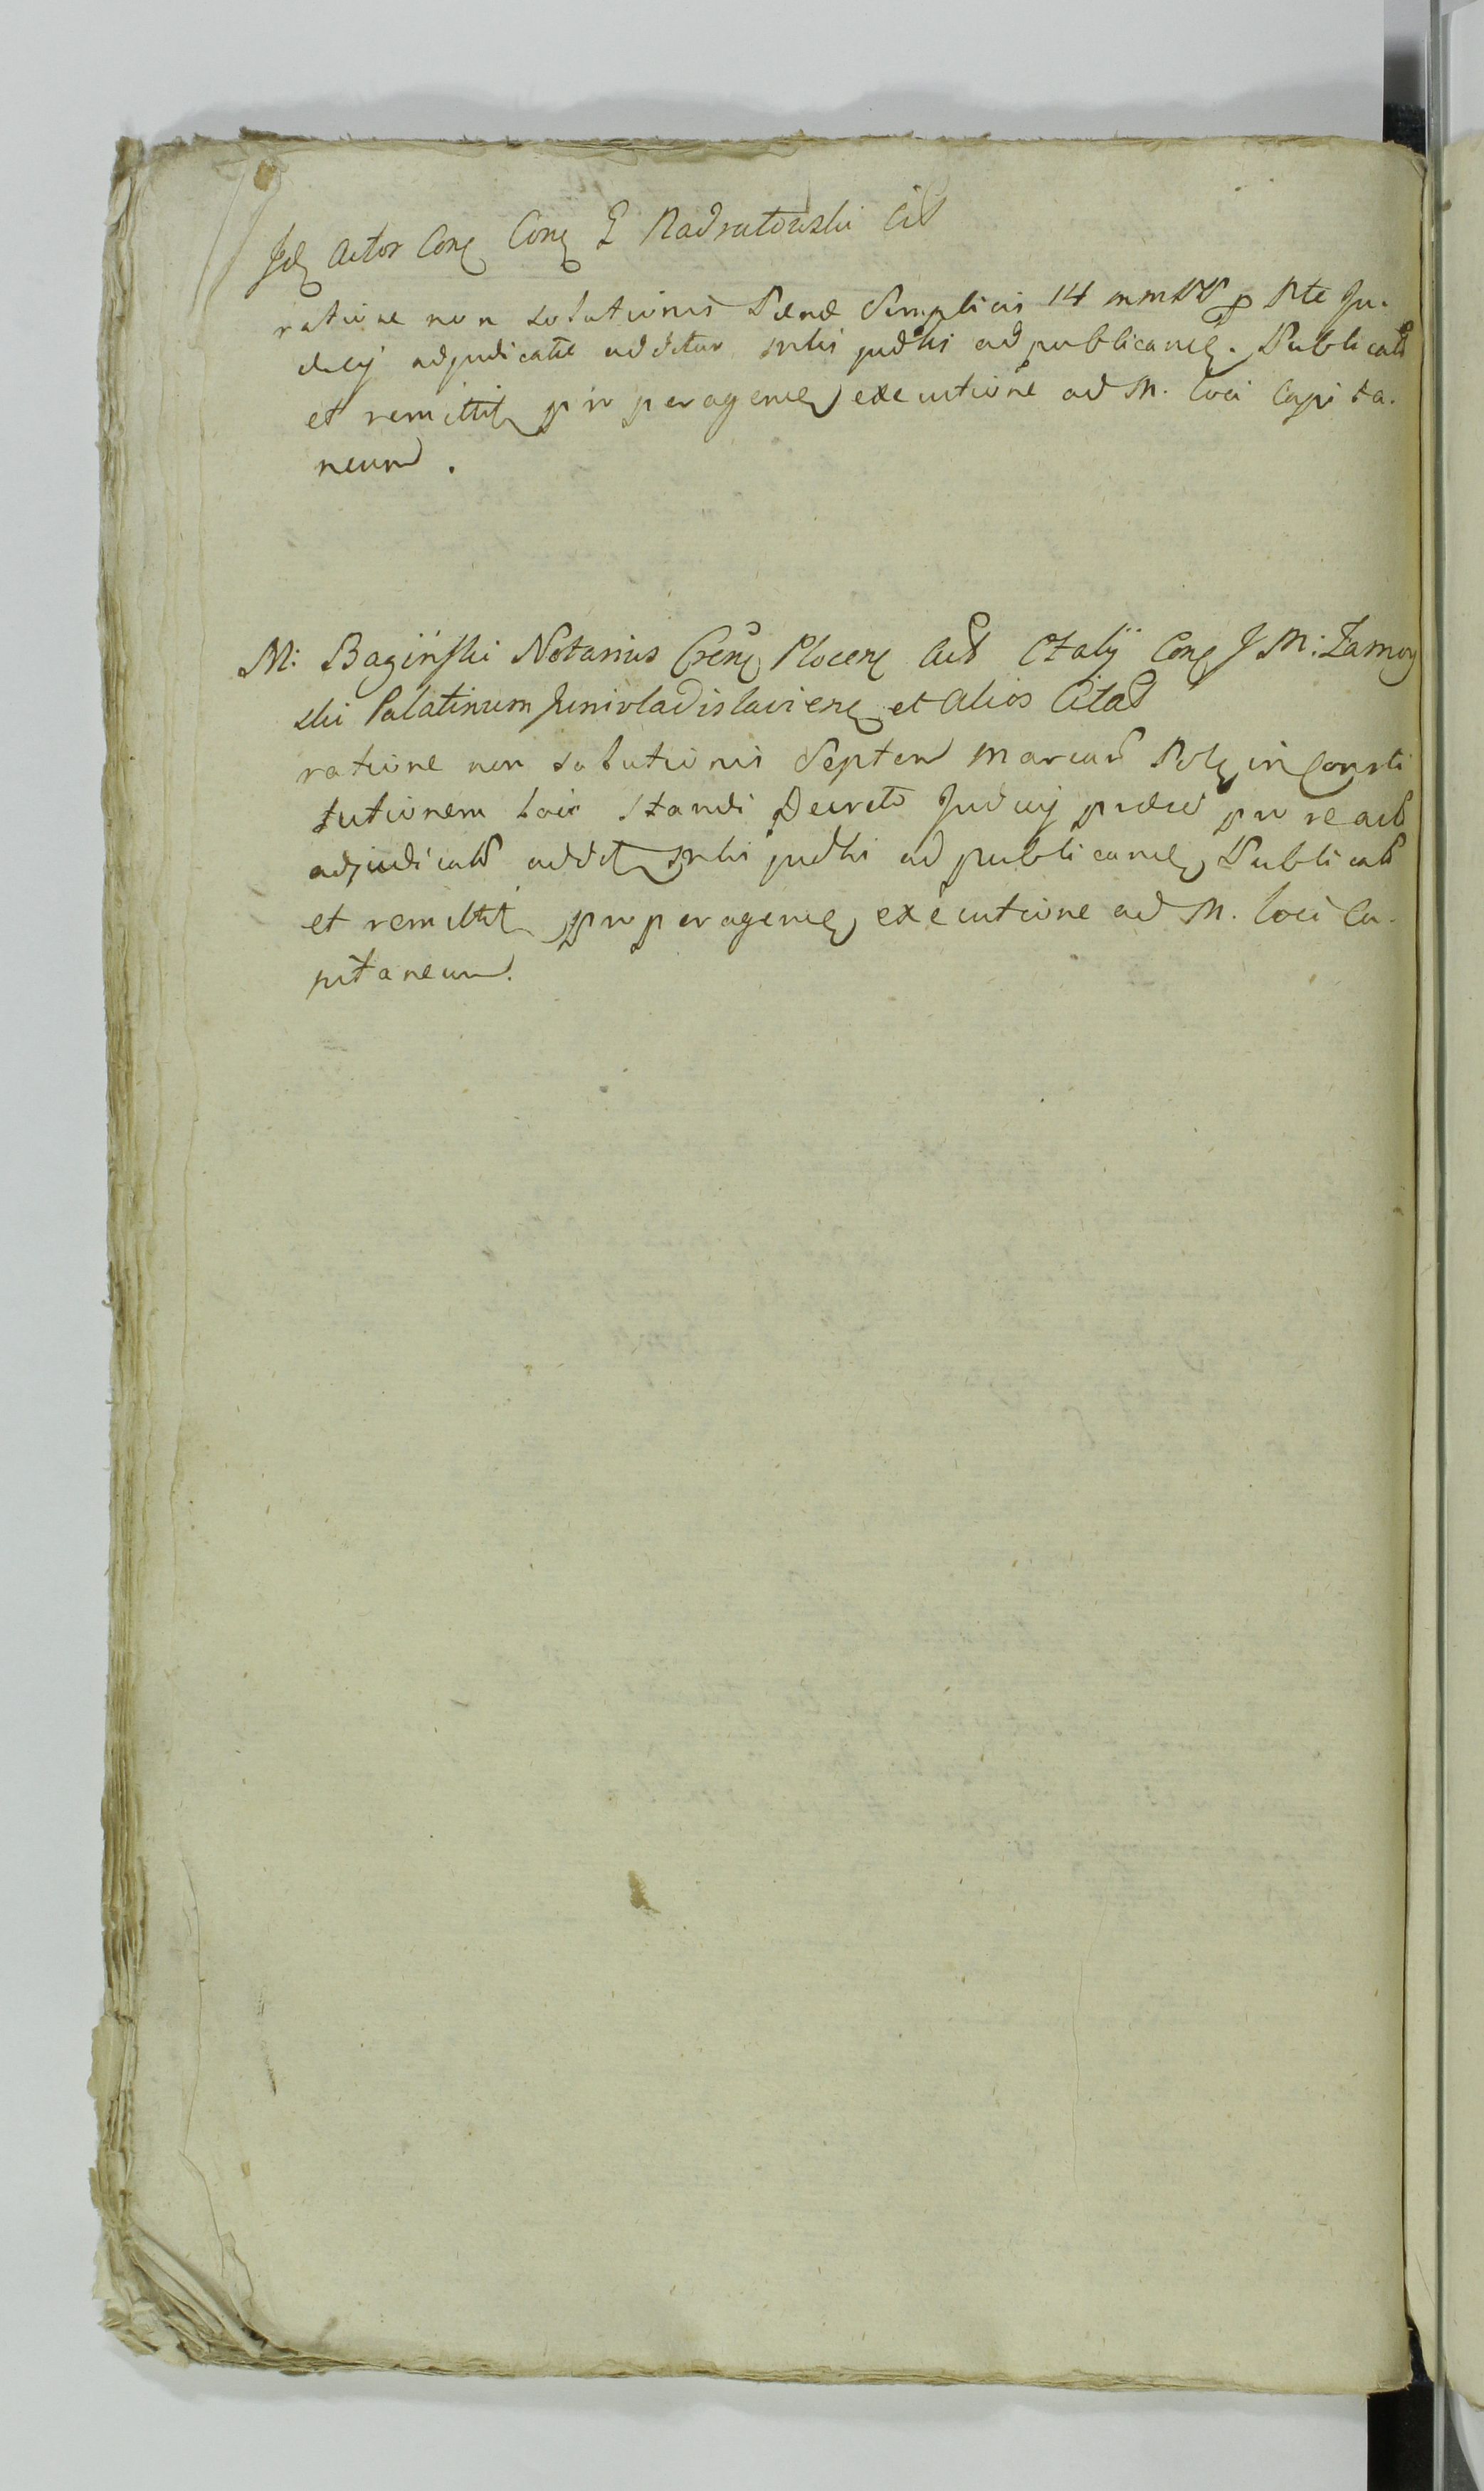 Id Actor Con Con G Nadratowski Cit
ratione non solutionis Pænæ Simplicis 14 mm p Pte Ju-
dicij adjudicatæ additur mlis judlis ad publicand. Publicat
et remittit pro peragend executione ad M. loci Capita-
neum.
M: Baginski Notarius Cren Plocen Act Ctalij Con J M: Zamoy
ski Palatinum Junivladislavien et Alios Citat
ratione non solutionis Septem Marcar Pol in Consti
tutionem loci standi Decreto Judicij præsen pro re act
adjudicat addit mlis judli ad publicand Publicat
et remittit pro peragend executione ad M. loci Ca-
pitaneum.